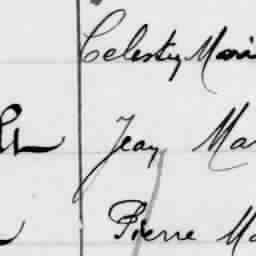 Celestin Marie
Jean Ma
Pierre Ma